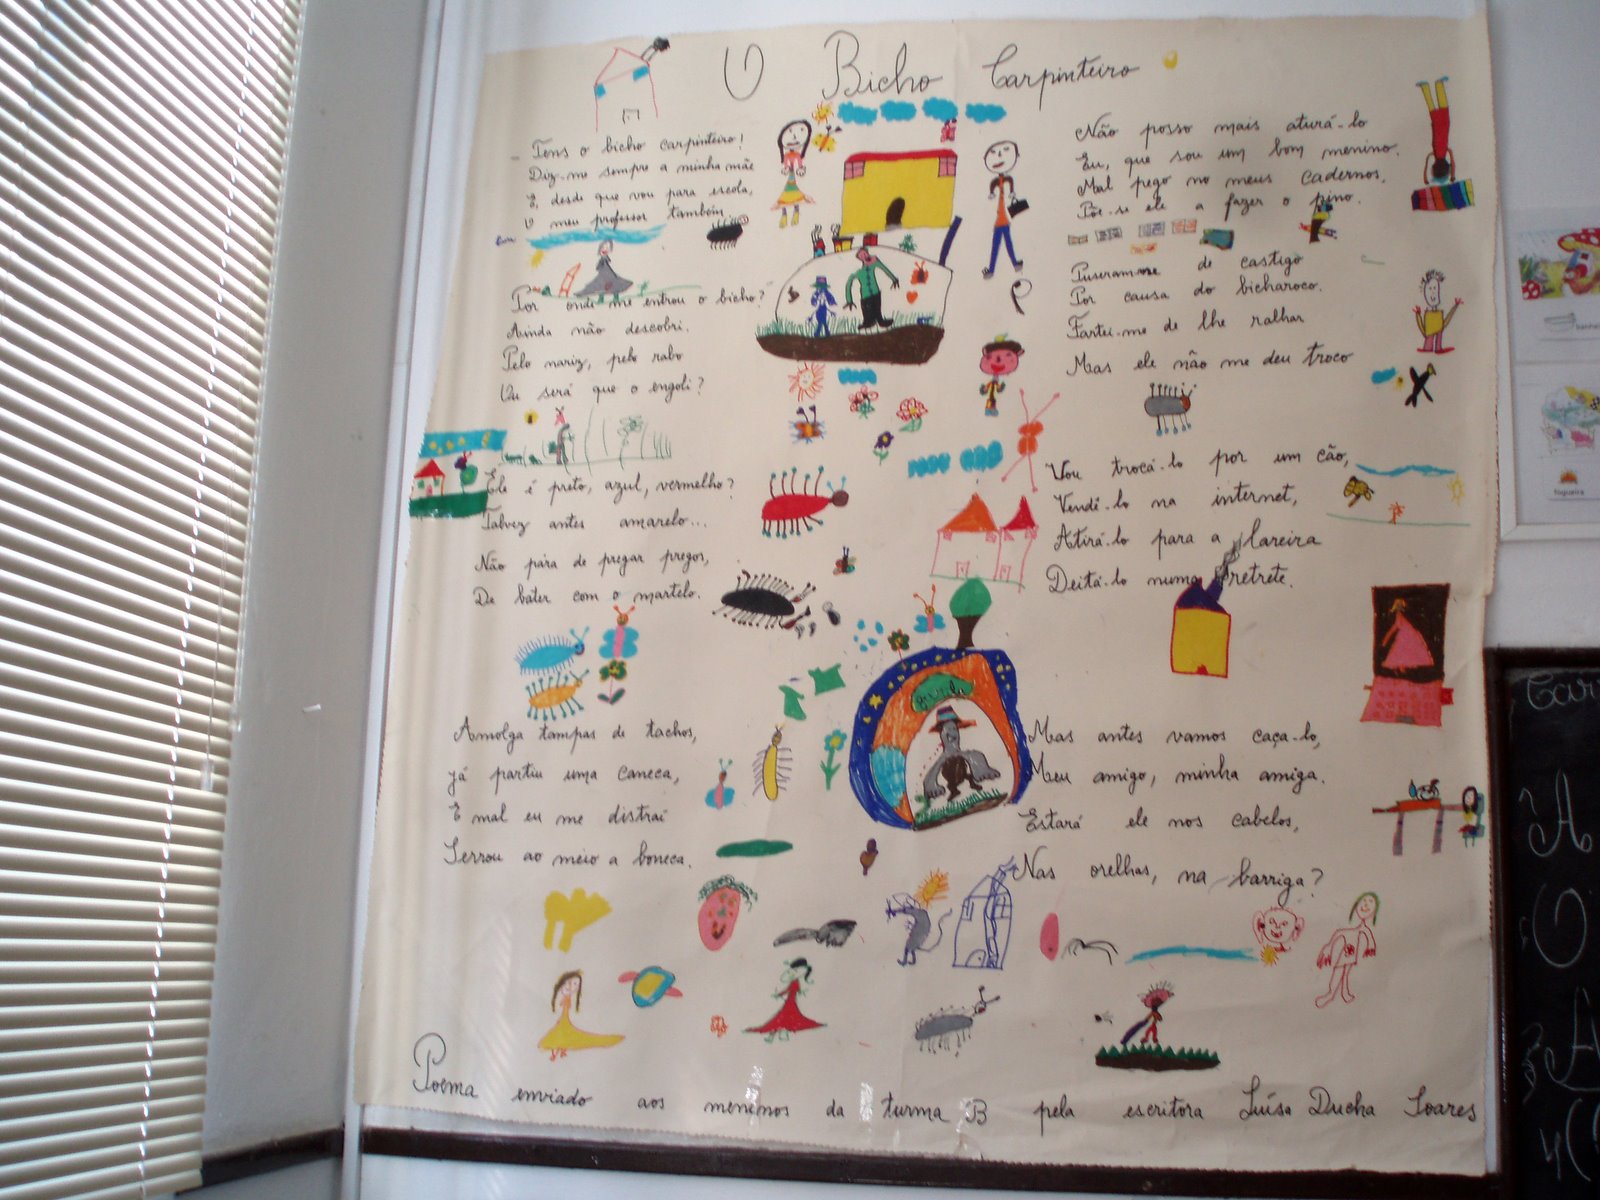 O Bicho Carpinteiro
- Tens o bicho carpinteiro!
Diz-me sempre a minha mãe
E, desde que vou para escola,
O meu professor também.
Por onde me entrou o bicho?
Ainda não descobri.
Pelo nariz, pelo rabo
Ou será que o engoli?
Ele é preto, azul, vermelho?
Talvez antes amarelo...
Não pára de pregar pregos,
De bater com o martelo.
Amolga tampas de tachos,
Já partiu uma caneca,
E mal eu me distraí
Serrou ao meio a boneca.
Não posso mais aturá-lo
Eu, que sou um bom menino.
Mal pego no meus cadernos,
Põe-se ele a fazer o pino.
Puseram-me de castigo
Por causa do bicharoco.
Fartei-me de lhe ralhar
Mas ele não me deu troco
Vou trocá-lo por um cão,
Vendê-lo na internet,
Atirá-lo para a lareira
Deitá-lo numa retrete.
Mas antes vamos caça-lo,
Meu amigo, minha amiga.
Estará ele nos cabelos,
Nas orelhas, na barriga?
Poema enviado aos meninos da turma B pela escritora Luísa Ducha Soares
fogueira